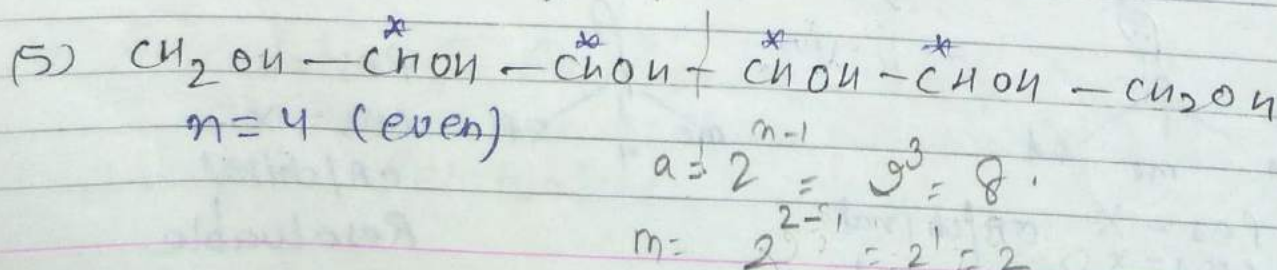 (5) CH₂OH — C*HOH — C*HOH + C*HOH — C*HOH — CH₂OH
n = 4 (even)
a = 2ⁿ⁻¹ = 2³ = 8.
m = 2²⁻¹ = 2¹ = 2